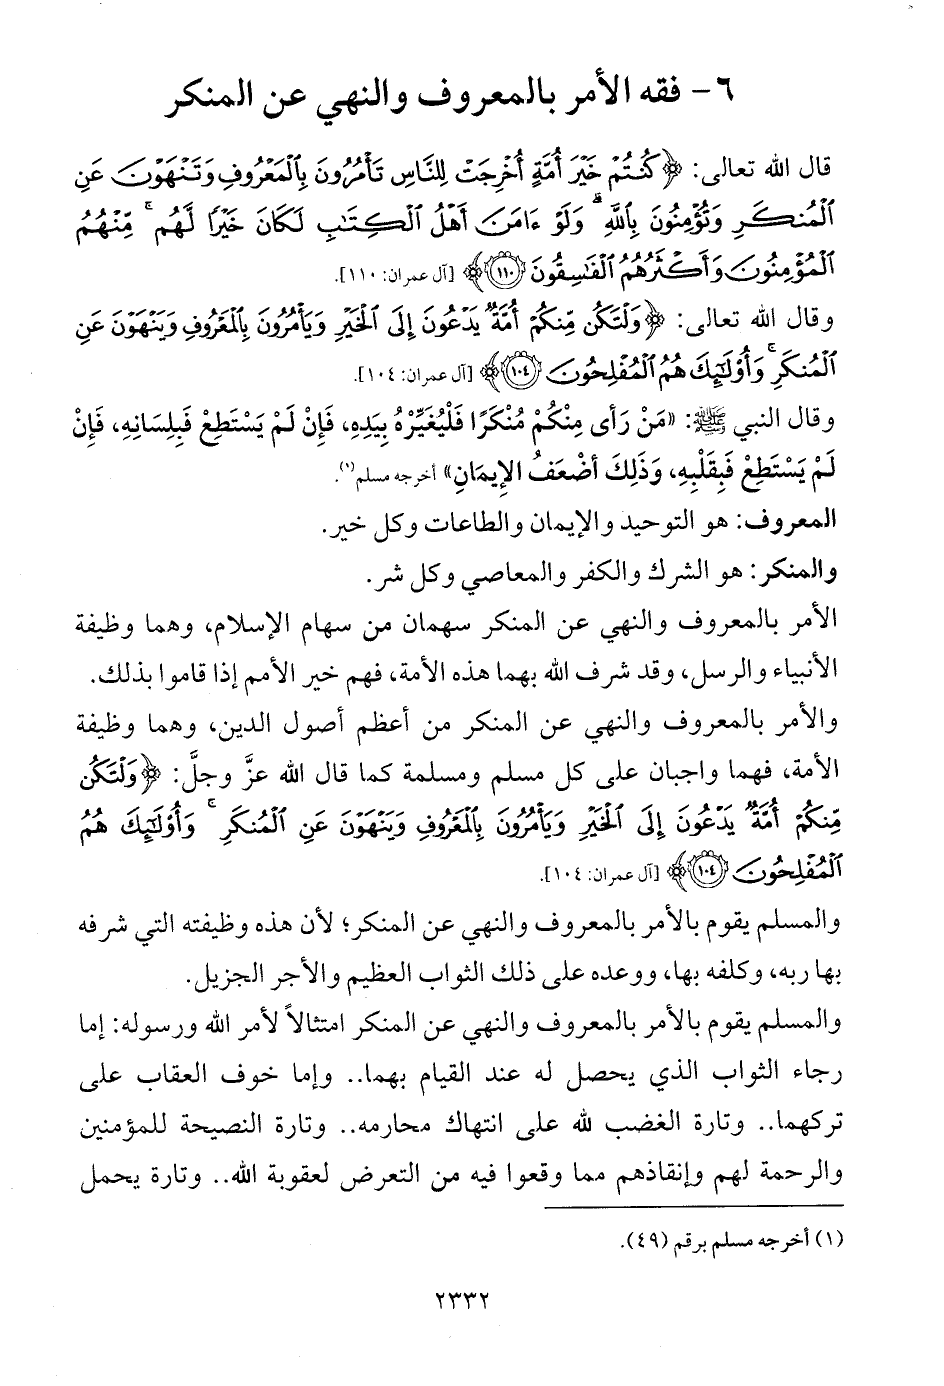 ٦- فقه الأمر بالمعروف والنهي عن المنكر
قال الله تعالى: ﴿كُنتُمْ خَيْرَ أُمَّةٍ أُخْرِجَتْ لِلنَّاسِ تَأْمُرُونَ بِالْمَعْرُوفِ وَتَنْهَوْنَ عَنِ
الْمُنكَرِ وَتُؤْمِنُونَ بِاللَّهِ ۗ وَلَوْ ءَامَنَ أَهْلُ الْكِتَٰبِ لَكَانَ خَيْرًا لَّهُم ۚ مِّنْهُمُ
الْمُؤْمِنُونَ وَأَكْثَرُهُمُ الْفَٰسِقُونَ ١١٠﴾ [آل عمران: ١١٠].
وقال الله تعالى: ﴿وَلْتَكُن مِّنكُمْ أُمَّةٌ يَدْعُونَ إِلَى الْخَيْرِ وَيَأْمُرُونَ بِالْمَعْرُوفِ وَيَنْهَوْنَ عَنِ
الْمُنكَرِ ۚ وَأُوْلَٰٓئِكَ هُمُ الْمُفْلِحُونَ ١٠٤﴾ [آل عمران: ١٠٤].
وقال النبي ﷺ: «مَنْ رَأى مِنْكُمْ مُنْكَرًا فَلْيُغَيِّرْهُ بِيَدِهِ، فَإِنْ لَمْ يَسْتَطِعْ فَبِلِسَانِهِ، فَإِنْ
لَمْ يَسْتَطِعْ فَبِقَلْبِهِ، وَذَلِكَ أضْعَفُ الإِيمَانِ» أخرجه مسلم(١).
المعروف: هو التوحيد والإيمان والطاعات وكل خير.
والمنكر: هو الشرك والكفر والمعاصي وكل شر.
الأمر بالمعروف والنهي عن المنكر سهمان من سهام الإسلام، وهما وظيفة
الأنبياء والرسل، وقد شرف الله بهما هذه الأمة، فهم خير الأمم إذا قاموا بذلك.
والأمر بالمعروف والنهي عن المنكر من أعظم أصول الدين، وهما وظيفة
الأمة، فهما واجبان على كل مسلم ومسلمة كما قال الله عزَّ وجلَّ: ﴿وَلْتَكُن
مِّنكُمْ أُمَّةٌ يَدْعُونَ إِلَى الْخَيْرِ وَيَأْمُرُونَ بِالْمَعْرُوفِ وَيَنْهَوْنَ عَنِ الْمُنكَرِ ۚ وَأُوْلَٰٓئِكَ هُمُ
الْمُفْلِحُونَ ١٠٤﴾ [آل عمران: ١٠٤].
والمسلم يقوم بالأمر بالمعروف والنهي عن المنكر؛ لأن هذه وظيفته التي شرفه
بها ربه، وكلفه بها، ووعده على ذلك الثواب العظيم والأجر الجزيل.
والمسلم يقوم بالأمر بالمعروف والنهي عن المنكر امتثالاً لأمر الله ورسوله: إما
رجاء الثواب الذي يحصل له عند القيام بهما.. وإما خوف العقاب على
تركهما.. وتارة الغضب لله على انتهاك محارمه.. وتارة النصيحة للمؤمنين
والرحمة لهم وإنقاذهم مما وقعوا فيه من التعرض لعقوبة الله.. وتارة يحمل
(١) أخرجه مسلم برقم (٤٩).
٢٣٣٢